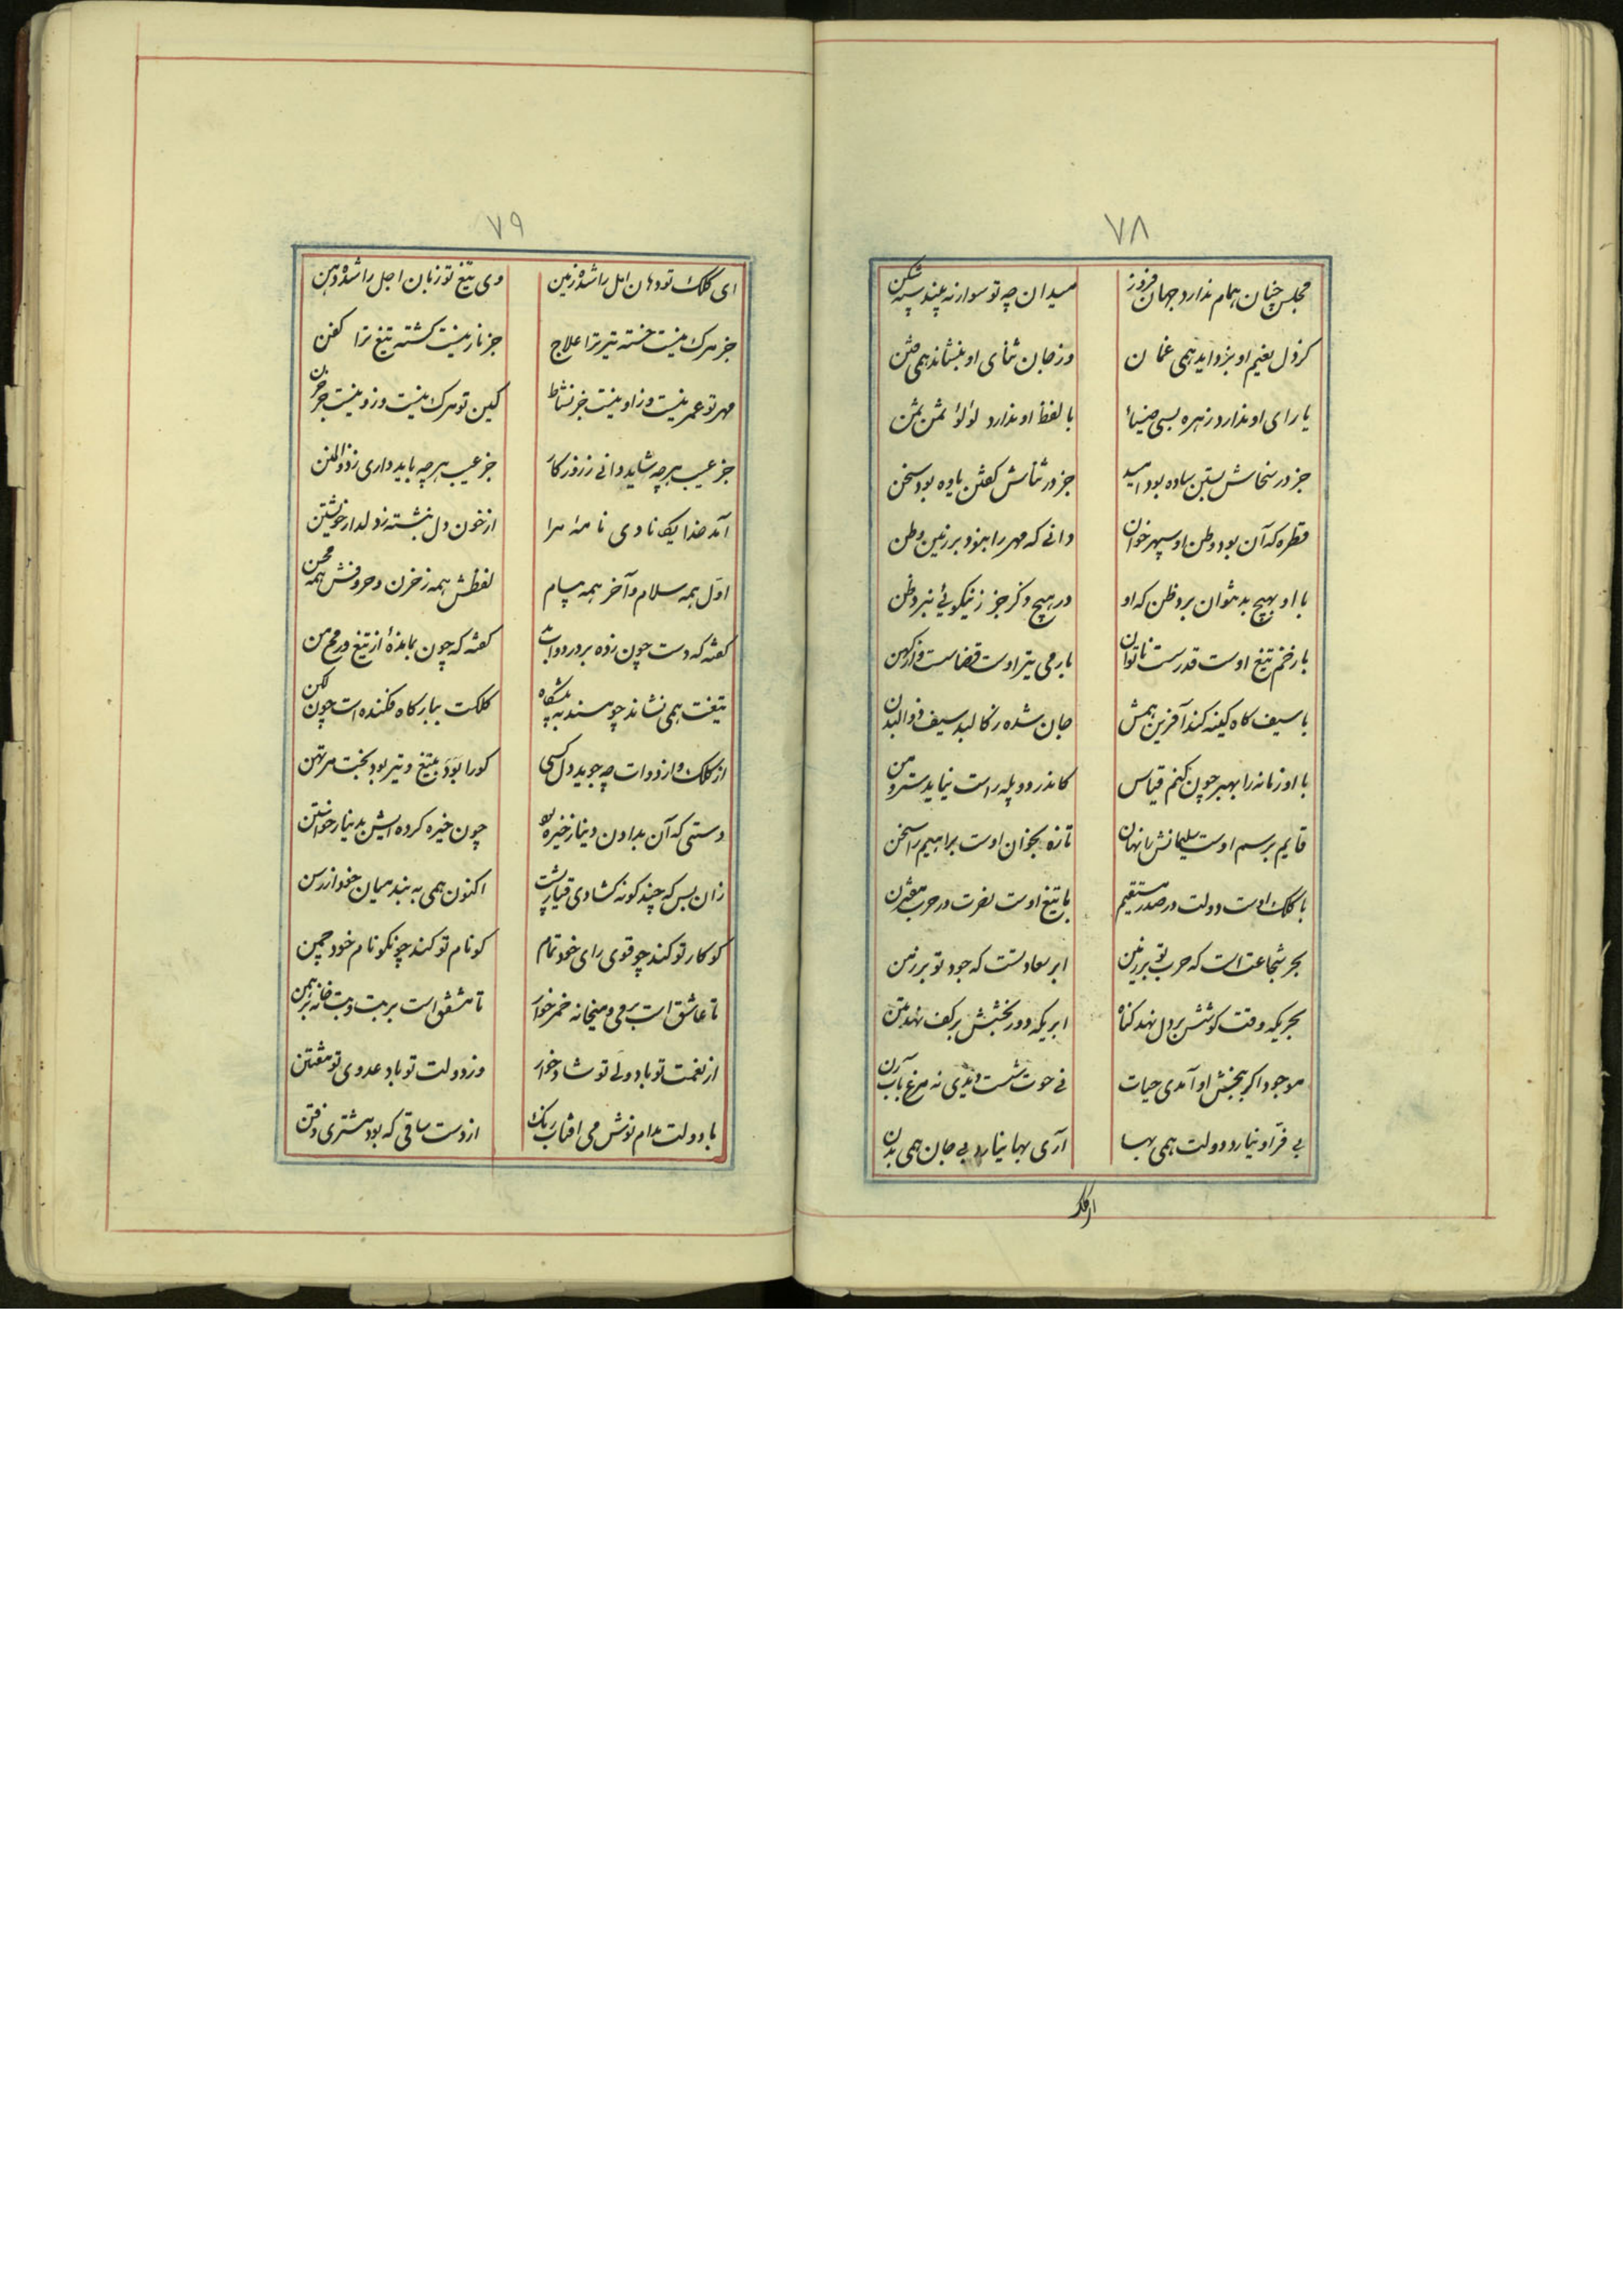 ۷۸
مجلس چنان همام ندارد جهان فروز میدان چه تو سوار نه بیند سپه شکن
کز دل نعیم او بزداید همی غمان وز جان ثنای او بنشاند همی
با رای او ندارد زهره بسی ضیاء با لفظ او ندارد لؤلؤ ثمن ثمن
جز در سخاش بستن ساده بود امید جز در ثناش گفتن یاوه بود سخن
قطره که آن بود وطن او سپهر خوان دانی که مهر را بنود بر زمین وطن
با او بهیچ بد نتوان برد ظن که او در هیچ دگر جز ز نیکوئی نبرد ظن
با زخم تیغ اوست قدر سست ناتوان با رمی تیر اوست قضا سست
با سیف گاه کینه کند آفرین همش جان شده ز کالبد سیف ذوالیدن
با او زمانه را بهنر چون کنم قیاس کاندر دو پله راست نیاید
قایم برسم اوست سلیمانش تازه بخوان اوست براهیم را سخن
با کلک اوست دولت در صدر مستقیم با تیغ اوست نصرت در حرب مقترن
بحر شجاعت است که حرب تو بر زمین ابر سعادتست که جود تو بر زمن
بحریکه وقت کوشش بر دل نهد کناه ابریکه دور بخشش بر کف نهد
موجود اگر ببخشش او آمدی حیات نی حوت شست دیدی نه مرغ بابزن
بی فر او نیارد دولت همی بها آری بها نیارد بی جان همی بدن
۷۹
ای کلک تو دهان امل را شده زمین وی تیغ تو زبان اجل را شده دهن
جز مرک نیست خسته تیر ترا علاج جز نار نیست کشته تیغ ترا کفن
مهر تو عمر نیست وز او نیست جز نشاط کین تو مرک نیست وزو نیست جز حزن
جز عیب هر چه شاید دانی ز روزکار جز عیب هر چه باید داری ز ذوالمنن
آمد خدایکانا دی نامهٔ مرا از خون دل نبشته ز دلدار خویشتن
اول همه سلام و آخر همه پیام لفظش همه ز حزن و حروفش همه محن
گفته که دست چون زده بر در دوات گفته که چون بماندهٔ از تیغ و رمح من
تیغت همی نشاند چو سند به پیشگاه کلکت ببارگاه فکنده است چون لکن
از کلک و از دوات چه جوید دل کسی کو را بود بتیغ و تیر بود بخت مرتهن
دستی که آن بدادن دینار خیره بد چون خیره کرده ایش بدینار خواستن
زان پس که چند کونه کشادی قبا ز پشت اکنون همی به بند میان خود از رسن
کو کار تو کند چو قوی رای خود تمام کو نام تو کند چو نکو نام خود حسن
تا عاشق است بر می و میخانه خمر خوار تا مشفق است بر بت و بتخانه برهمن
از نعمت تو باد ولی تو شاد خوار وز دولت تو باد عدوی تو ممتحن
با دولت مدام نوش می آفتاب رنک از دست ساقی که بود مشتری ذقن